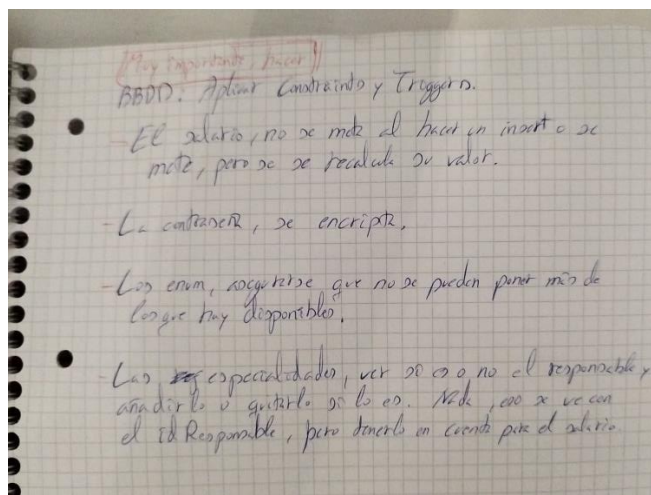 Muy importante, hacer
BBDD: Aplicar Constraints y Triggers.
- El salario, no se mete al hacer un insert o se
mete, pero se se recalcula su valor.
- La contraseña, se encripta.
- Los enum, asegurarse que no se pueden poner más de
los que hay disponibles.
- Las especialidades, ver si es o no el responsable y
añadirlo o quitarlo si lo es. Nada, eso se ve con
el id Responsable, pero tenerlo en cuenta para el salario.